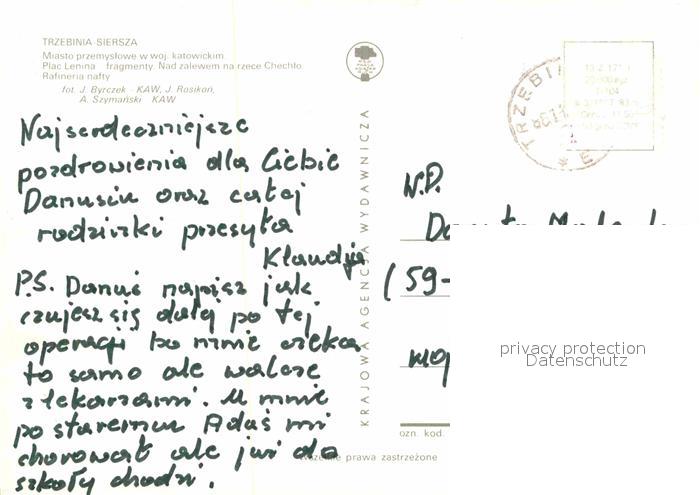 TRZEBINIA-SIERSZA
Miasto przemysłowe w woj. katowickim.
Plac Lenina fragmenty. Nad zalewem na rzece Chechło.
Rafineria nafty
fot. J. Byrczek - KAW, J. Rosikoń,
A. Szymański KAW
Najserdeczniejsze
pozdrowienia dla Ciebie
Danusiu oraz całej
rodzinki przesyła
Klaudyja
P.S. Danuś napisz jak
czujesz się dalej po tej
operacji bo mnie czeka
to samo ale walczę
z lekarzami. U mnie
po staremu Adaś mi
chorował ale już do
szkoły chodzi.
KRAJOWA AGENCJA WYDAWNICZA
TRZEBI
W.P.
(59-
privacy protection
Datenschutz
ozn. kod.
prawa zastrzeżone